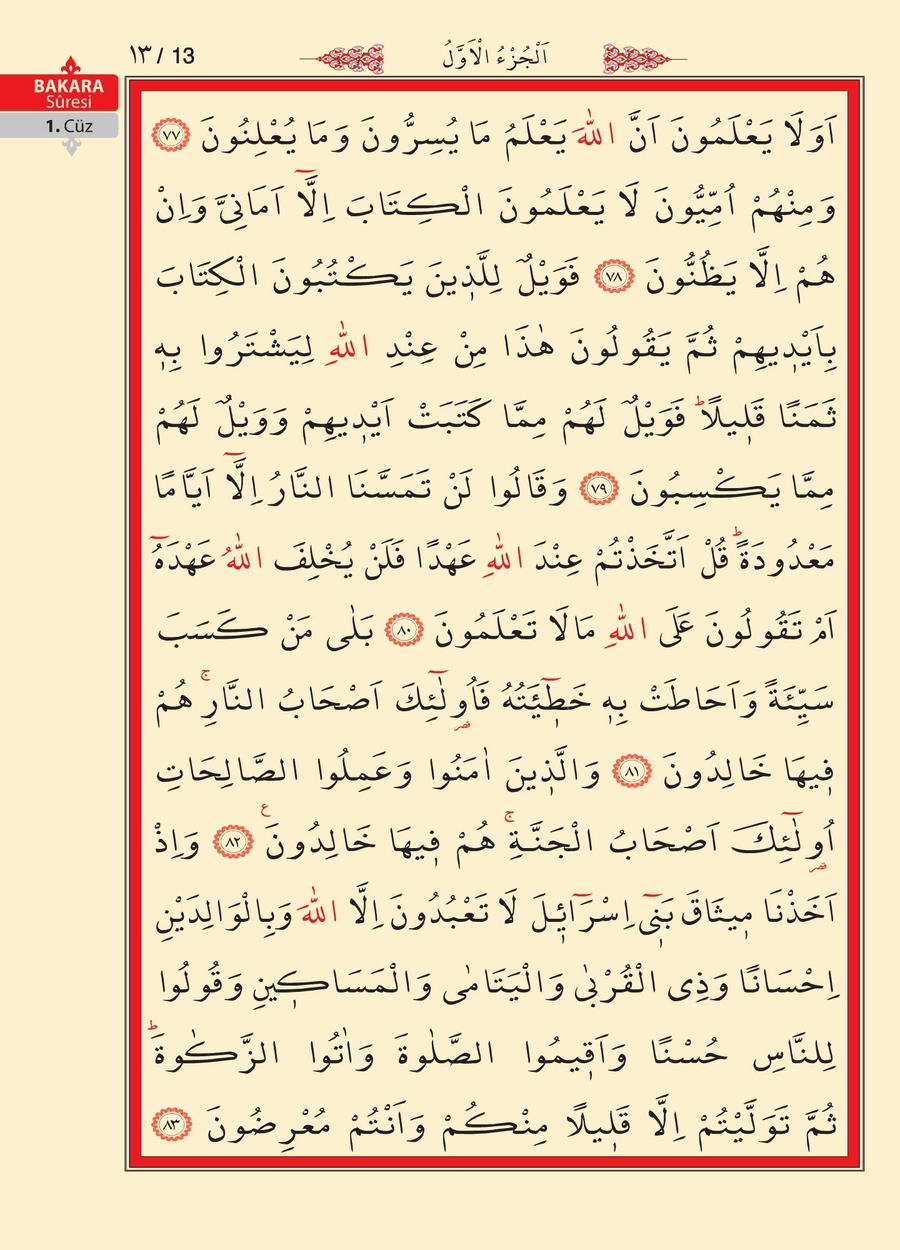 BAKARA
Sûresi
1. Cüz
١٣ / 13
اَلْجُزْءُ الْاَوَّلُ
اَوَلَا يَعْلَمُونَ اَنَّ اللّٰهَ يَعْلَمُ مَا يُسِرُّونَ وَمَا يُعْلِنُونَ ﴿٧٧﴾
وَمِنْهُمْ اُمِّيُّونَ لَا يَعْلَمُونَ الْكِتَابَ اِلَّٓا اَمَانِىَّ وَاِنْ
هُمْ اِلَّا يَظُنُّونَ ﴿٧٨﴾ فَوَيْلٌ لِلَّذ۪ينَ يَكْتُبُونَ الْكِتَابَ
بِاَيْد۪يهِمْ ثُمَّ يَقُولُونَ هٰذَا مِنْ عِنْدِ اللّٰهِ لِيَشْتَرُوا بِه۪
ثَمَنًا قَل۪يلًاۜ فَوَيْلٌ لَهُمْ مِمَّا كَتَبَتْ اَيْد۪يهِمْ وَوَيْلٌ لَهُمْ
مِمَّا يَكْسِبُونَ ﴿٧٩﴾ وَقَالُوا لَنْ تَمَسَّنَا النَّارُ اِلَّٓا اَيَّامًا
مَعْدُودَةًۜ قُلْ اَتَّخَذْتُمْ عِنْدَ اللّٰهِ عَهْدًا فَلَنْ يُخْلِفَ اللّٰهُ عَهْدَهُٓ
اَمْ تَقُولُونَ عَلَى اللّٰهِ مَالَا تَعْلَمُونَ ﴿٨٠﴾ بَلٰى مَنْ كَسَبَ
سَيِّئَةً وَاَحَاطَتْ بِه۪ خَط۪ٓيـَٔتُهُ فَاُو۬لٰٓئِكَ اَصْحَابُ النَّارِۚ هُمْ
ف۪يهَا خَالِدُونَ ﴿٨١﴾ وَالَّذ۪ينَ اٰمَنُوا وَعَمِلُوا الصَّالِحَاتِ
اُو۬لٰٓئِكَ اَصْحَابُ الْجَنَّةِۚ هُمْ ف۪يهَا خَالِدُونَ ع ﴿٨٢﴾ وَاِذْ
اَخَذْنَا م۪يثَاقَ بَن۪ٓى اِسْرَٓائ۪لَ لَا تَعْبُدُونَ اِلَّا اللّٰهَ وَبِالْوَالِدَيْنِ
اِحْسَانًا وَذِى الْقُرْبٰى وَالْيَتَامٰى وَالْمَسَاك۪ينِ وَقُولُوا
لِلنَّاسِ حُسْنًا وَاَق۪يمُوا الصَّلٰوةَ وَاٰتُوا الزَّكٰوةَۜ
ثُمَّ تَوَلَّيْتُمْ اِلَّا قَل۪يلًا مِنْكُمْ وَاَنْتُمْ مُعْرِضُونَ ﴿٨٣﴾